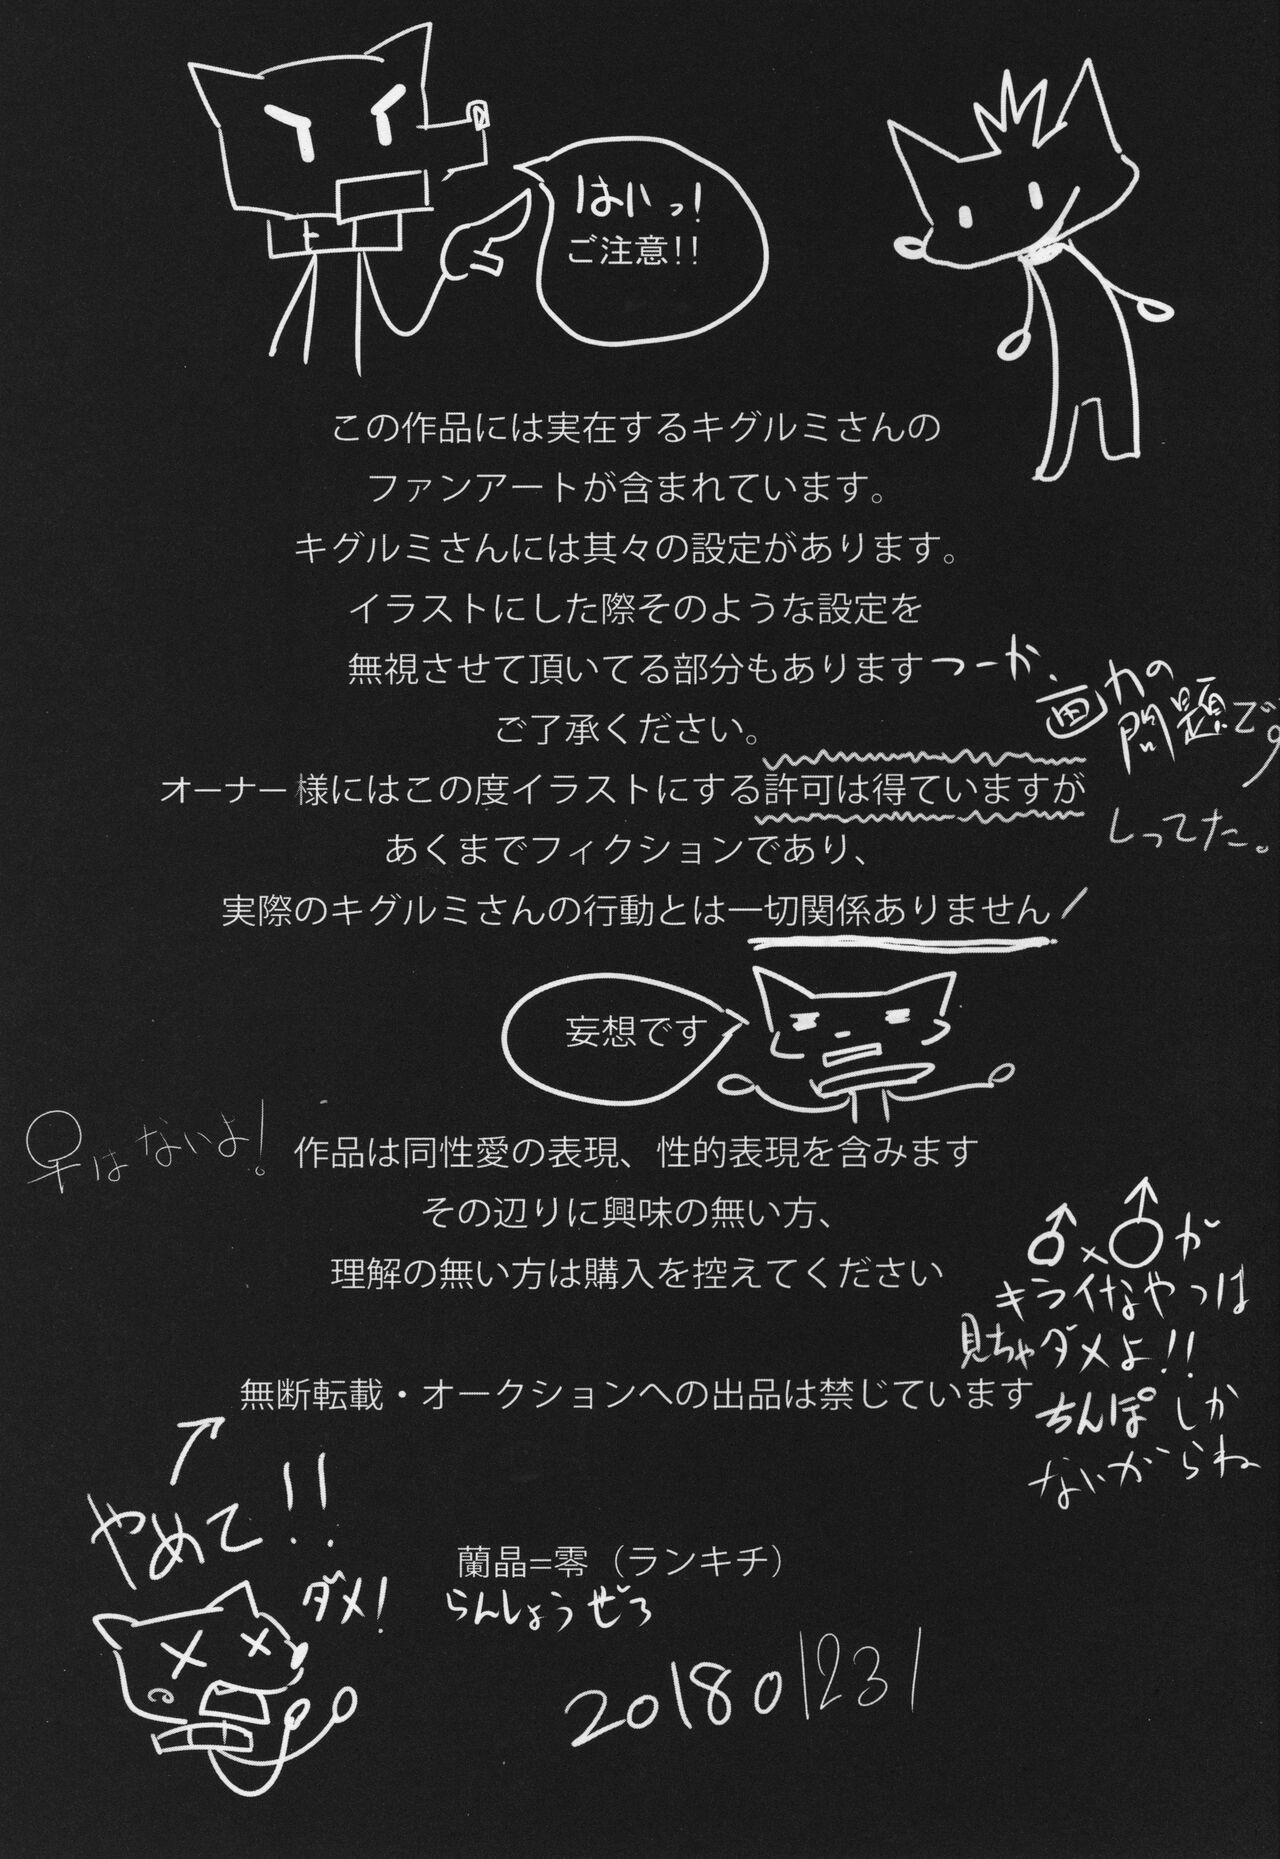 はいっ!
ご注意!!
この作品には実在するキグルミさんの
ファンアートが含まれています。
キグルミさんには其々の設定があります。
イラストにした際そのような設定を
無視させて頂いてる部分もあります
つーか、画力の
問題です。
ご了承ください。
オーナー様にはこの度イラストにする許可は得ていますが
しってた。
あくまでフィクションであり、
実際のキグルミさんの行動とは一切関係ありません
妄想です
♀はないよ!
作品は同性愛の表現、性的表現を含みます
その辺りに興味の無い方、
理解の無い方は購入を控えてください
♂×♂が
キライなやつは
見ちゃダメよ!!
ちんぽしか
ないからね
無断転載・オークションへの出品は禁じています
やめて!!
ダメ!
蘭晶=零（ランキチ）
らんしょうぜろ
20180123